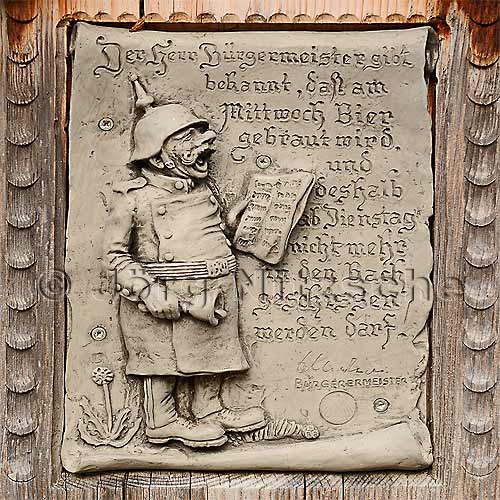 Der Herr Bürgermeister gibt
bekannt, daß am
Mittwoch Bier
gebraut wird,
und
deshalb
ab Dienstag
nicht mehr
in den Bach
geschissen
werden darf.
BÜRGERERMEISTER
© Jörg Nitzsche